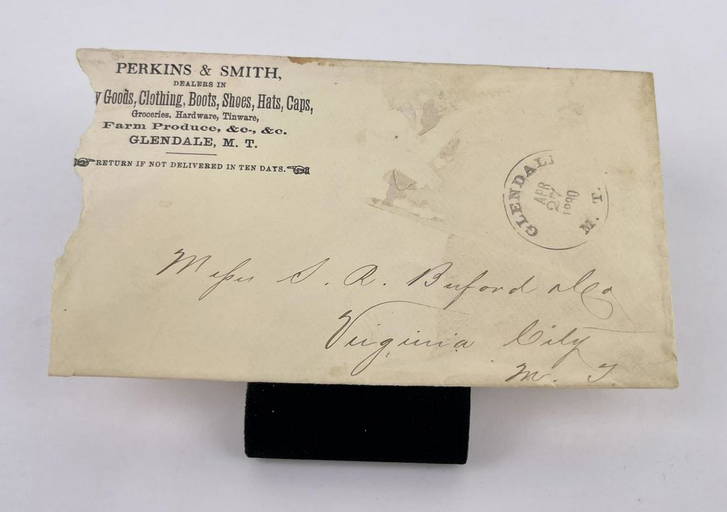 PERKINS & SMITH,
DEALERS IN
y Goods, Clothing, Boots, Shoes, Hats, Caps,
Groceries, Hardware, Tinware,
Farm Produce, &c., &c.
GLENDALE, M. T.
RETURN IF NOT DELIVERED IN TEN DAYS.
GLENDAL
APR
27
1880
M. T.
Mess S. R. Buford & Co
Virginia City
M. T.